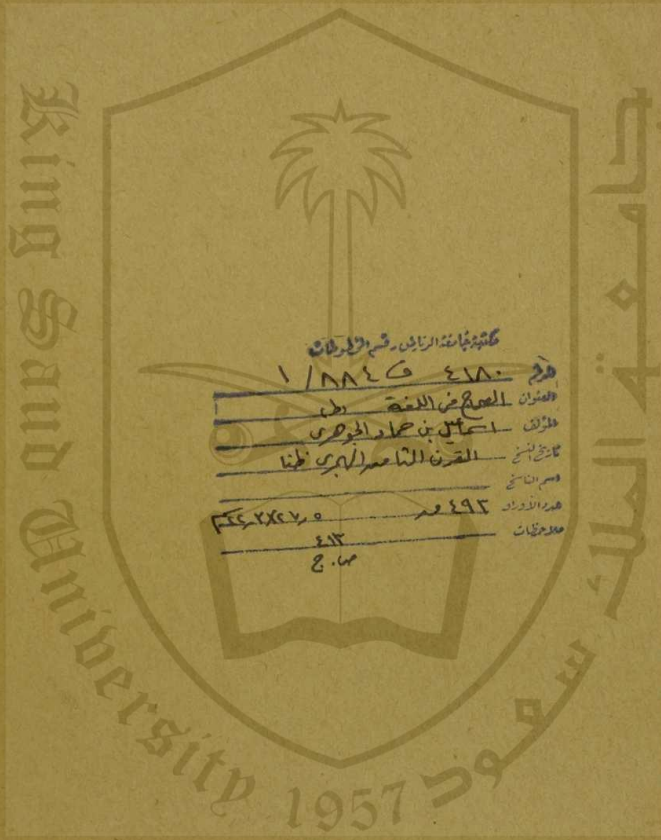 King Saud University 1957
جامعة الملك سعود
مكتبة جامعة الرياض - قسم المخطوطات
الرقم ٤١٨٠ ف ٨٨٤ / ١
العنوان الصحاح في اللغة
المؤلف اسماعيل بن حماد الجوهري
تاريخ النسخ القرن الثامن الهجري ظنا
اسم الناسخ
عدد الأوراق ٤٩٢
ملاحظات ٤١٣
ص . ج